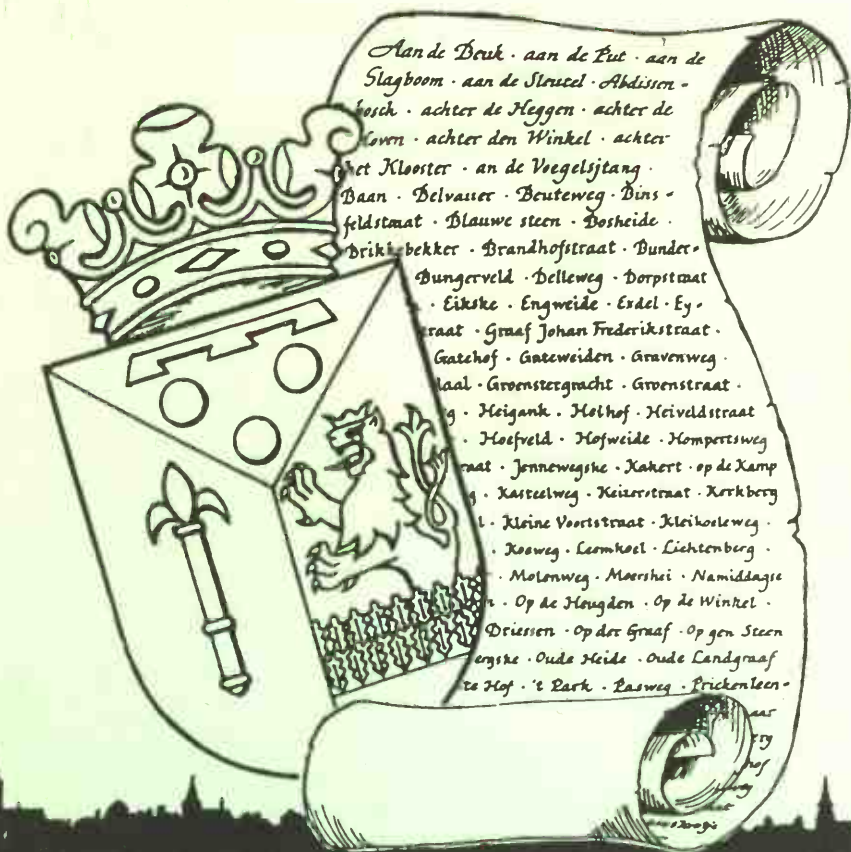 Aan de Beuk · aan de Put · aan de
Slagboom · aan de Sleutel · Abdissen-
bosch · achter de Heggen · achter de
Hoven · achter den Winkel · achter
het Klooster · an de Voegelsjtang ·
Baan · Belvauer · Beuteweg · Bins-
feldstraat · Blauwe steen · Bosheide ·
Brikkebekker · Brandhofstraat · Bunder-
Bungerveld · Delleweg · Dorpstraat
· Eikske · Engweide · Exdel · Ey-
raat · Graaf Johan Frederikstraat ·
Gatehof · Gateweiden · Gravenweg ·
aal · Groenstergracht · Groenstraat ·
g · Heigank · Holhof · Heiveldstraat
· Hoefveld · Hofweide · Hompertsweg
raat · Jennewegske · Kakert · op de Kamp
g · Kasteelweg · Keizerstraat · Kerkberg
l · Kleine Voortstraat · Kleikoeleweg ·
· Kooweg · Leemkoel · Lichtenberg ·
· Molenweg · Moershei · Namiddagse
n · Op de Heugden · Op de Winkel ·
Driessen · Op der Graaf · Op gen Steen
ergske · Oude Heide · Oude Landgraaf
te Hof · 't Park · Pasweg · Prickenleen-